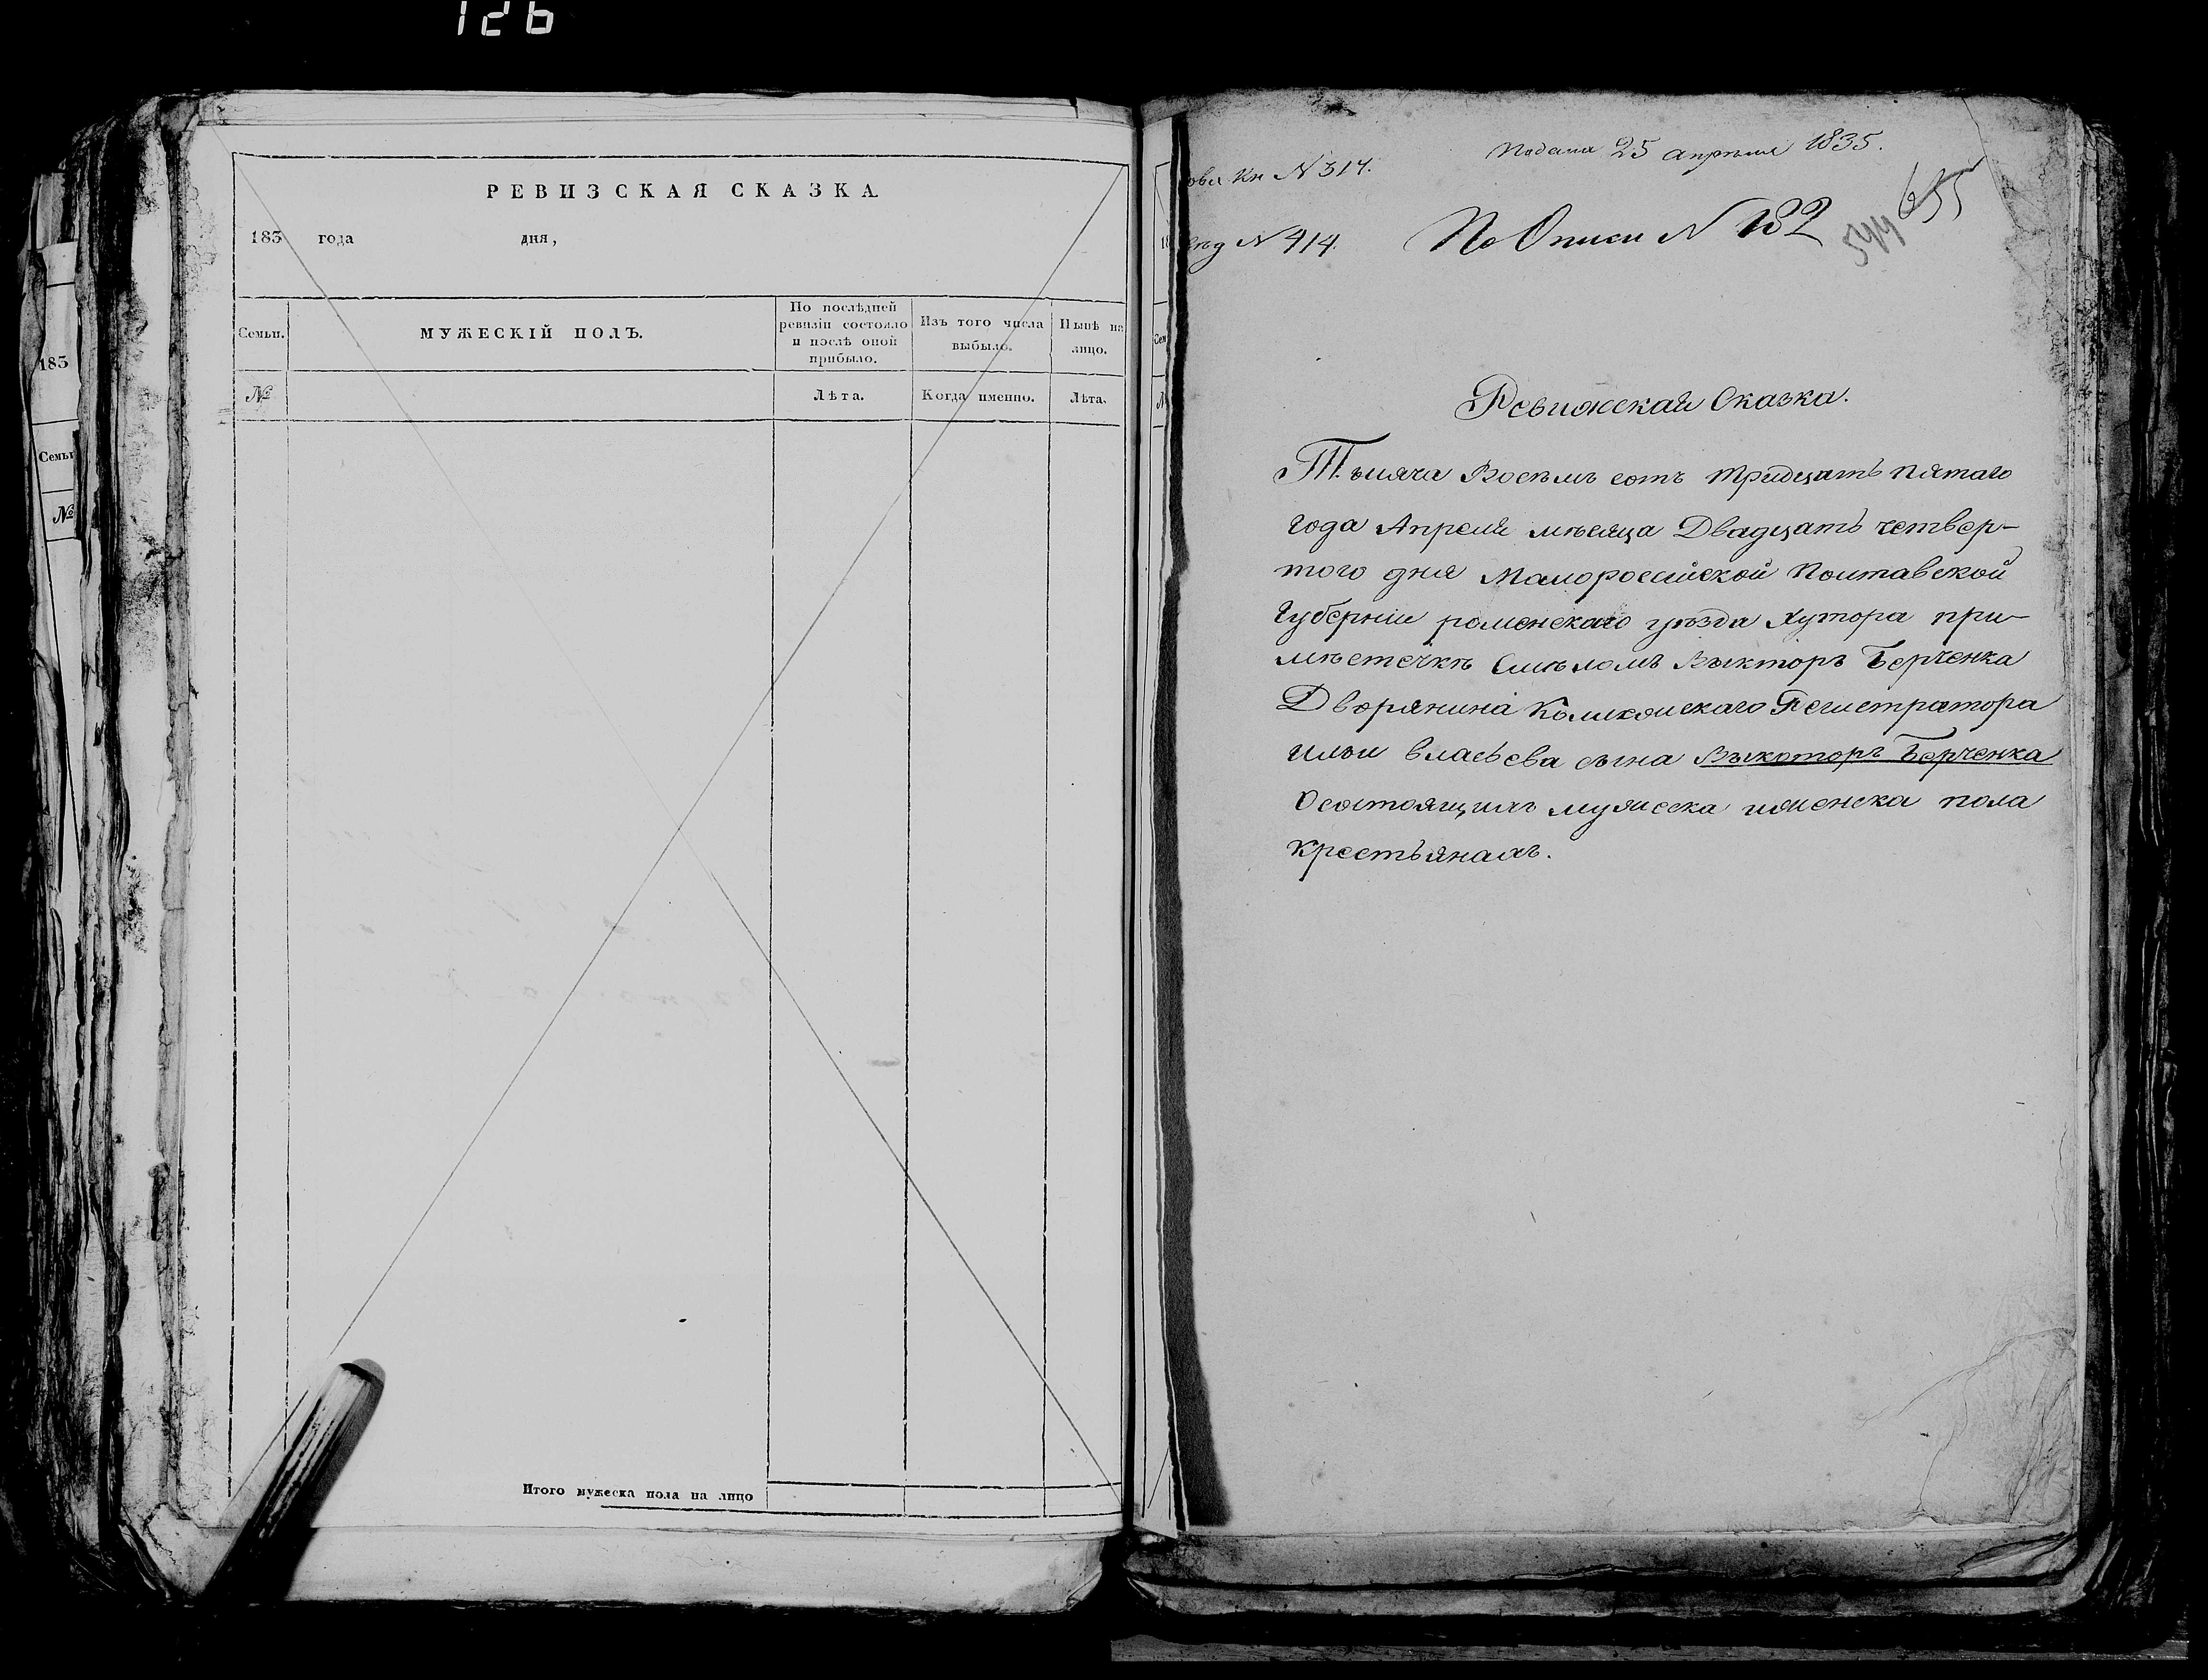 126
РЕВИЗСКАЯ СКАЗКА
183 года дня,
Семьи.
МУЖЕСКІЙ ПОЛЪ.
По послѣдней ревизіи состояло и послѣ оной прибыло.
Изъ того числа выбыло.
Нынѣ на лицо.
№
Лѣта.
Когда именно.
Лѣта.
Итого мужеска пола на лицо
183
Семьи
№
Подана 25 апрѣля 1835.
Кн N 317.
N 414.
По Описи N 132
655
544
Ревижская Сказка.
Тысяча Восемь сотъ тридцать пятаго
года Апреля мѣсяца Двадцать четвер-
того дня Малоросійской Полтавской
Губерніи роменскаго уѣзда Хутора при-
мѣстечкѣ Смѣломъ Выкторъ Берченка
Дворянина Колижскаго Регистратора
Ильи власьева сына Выкоторъ Берченка
Осостоящихъ мужеска иженска пола
крестьянахъ.